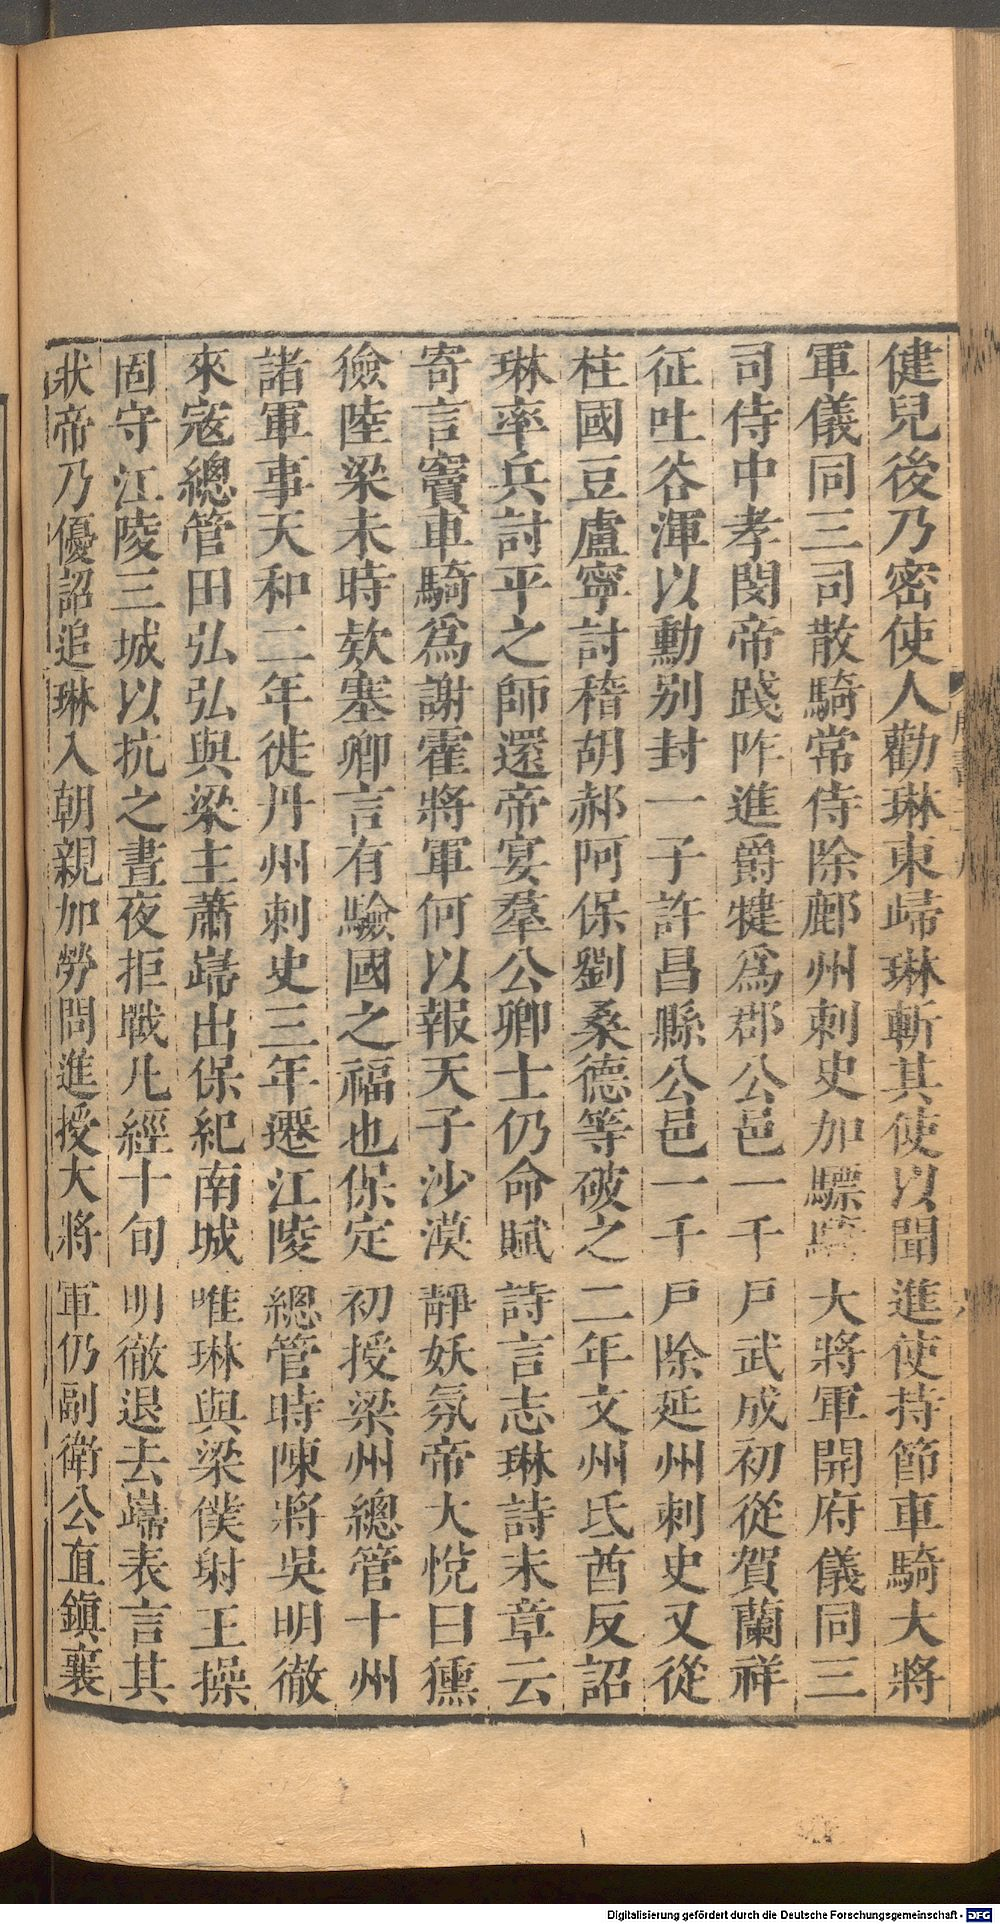 健兒後乃密使人勸琳東歸琳斬其使以聞進使持節車騎大將
軍儀同三司散騎常侍除鄜州刺史加驃騎大將軍開府儀同三
司侍中孝閔帝踐阼進爵犍爲郡公邑一千戸武成初從賀蘭祥
征吐谷渾以勳别封一子許昌縣公邑一千戸除延州刺史又從
柱國豆盧寧討稽胡郝阿保劉桑德等破之二年文州氐酋反詔
琳率兵討平之師還帝宴羣公卿士仍命賦詩言志琳詩末章云
寄言竇車騎爲謝霍將軍何以報天子沙漠靜妖氛帝大悅曰獯
獫陸梁未時欵塞卿言有驗國之福也保定初授梁州總管十州
諸軍事天和二年徙丹州刺史三年遷江陵總管時陳將吳明徹
來寇總管田弘弘與梁主蕭巋出保紀南城唯琳與梁僕射王操
固守江陵三城以抗之晝夜拒戰凡經十旬明徹退去巋表言其
狀帝乃優詔追琳入朝親加勞問進授大將軍仍副衛公直鎮襄
Digitalisierung gefördert durch die Deutsche Forschungsgemeinschaft - DFG